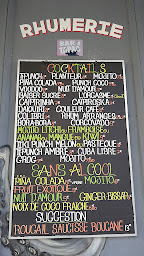 RHUMERIE
BAR À
COCKTAILS
TI PUNCH PLANTEUR MOJITO
PIÑA COLADA PUNCH COCO
VOODOO NUIT D'AMOUR
BARBER SUCRE
CAIPIRINHA CAIPIROSKA
DAIQUIRI COULEUR CAFÉ
COLIBRI RHUM ARRANGÉ
BORA BORA CORCOVADO
MOJITO LITCHI OU FRAMBOISE OU
ANANAS MANGUE
TIKI PUNCH MELON OU PASTÈQUE
TI PUNCH AMBRÉ CUBA LIBRE
GROG MOJITO
SANS ALCOOL
PIÑA COLADA MOJITO
FRUIT EXOTIQUE
NUIT D'AMOUR GINGER BISSAP
NOIX DE COCO FRAÎCHE
SUGGESTION
ROUGAIL SAUCISSE BOUCANÉ